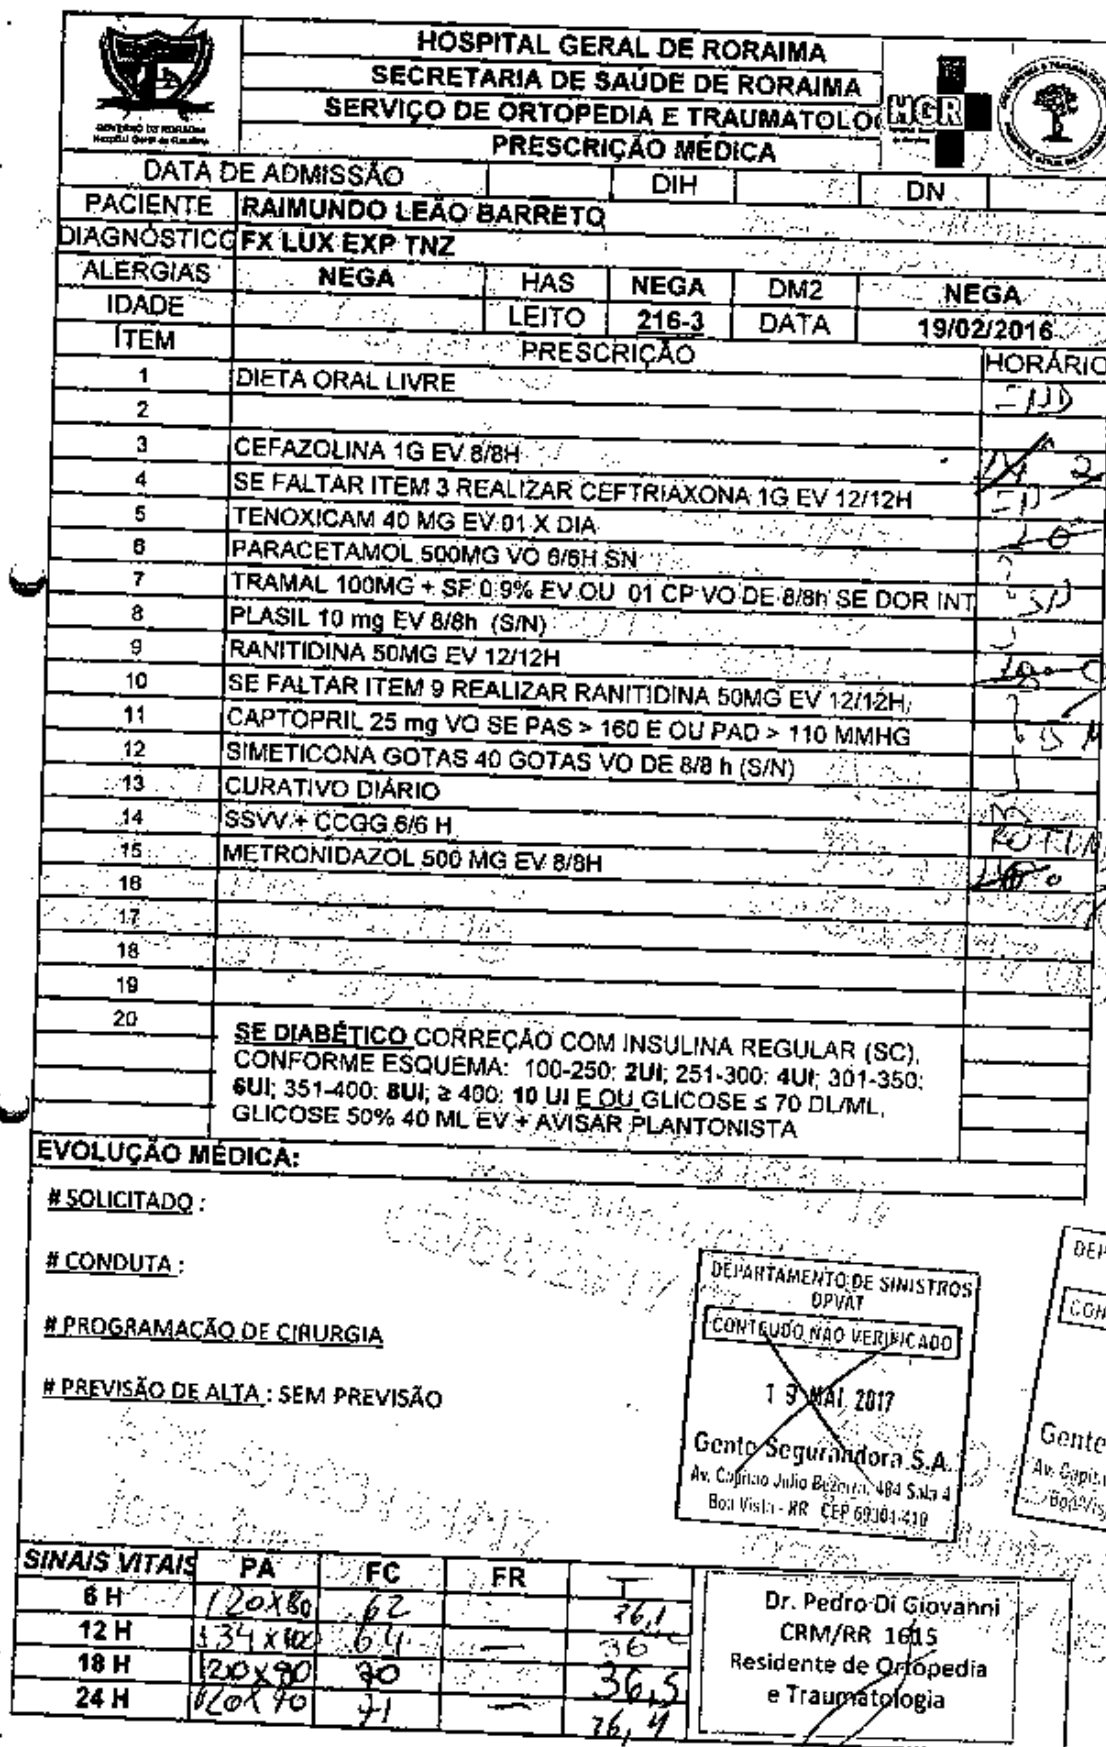 HOSPITAL GERAL DE RORAIMA
SECRETARIA DE SAÚDE DE RORAIMA
SERVIÇO DE ORTOPEDIA E TRAUMATOLO
PRESCRIÇÃO MÉDICA
GOVERNO DE RORAIMA
Hospital Geral de Roraima
HGR
DATA DE ADMISSÃO DIH DN
PACIENTE RAIMUNDO LEÃO BARRETO
DIAGNÓSTICO FX LUX EXP TNZ
ALERGIAS NEGA HAS NEGA DM2 NEGA
IDADE LEITO 216-3 DATA 19/02/2016
ÍTEM PRESCRIÇÃO HORÁRIO
1 DIETA ORAL LIVRE
2
3 CEFAZOLINA 1G EV 8/8H
4 SE FALTAR ITEM 3 REALIZAR CEFTRIAXONA 1G EV 12/12H
5 TENOXICAM 40 MG EV 01 X DIA
6 PARACETAMOL 500MG VO 6/6H SN
7 TRAMAL 100MG + SF 0,9% EV OU 01 CP VO DE 8/8h SE DOR INT
8 PLASIL 10 mg EV 8/8h (S/N)
9 RANITIDINA 50MG EV 12/12H
10 SE FALTAR ITEM 9 REALIZAR RANITIDINA 50MG EV 12/12H
11 CAPTOPRIL 25 mg VO SE PAS > 160 E OU PAD > 110 MMHG
12 SIMETICONA GOTAS 40 GOTAS VO DE 8/8 h (S/N)
13 CURATIVO DIÁRIO
14 SSVV + CCGG 6/6 H
15 METRONIDAZOL 500 MG EV 8/8H
16
17
18
19
20 SE DIABÉTICO CORREÇÃO COM INSULINA REGULAR (SC),
CONFORME ESQUEMA: 100-250: 2UI; 251-300: 4UI; 301-350:
6UI; 351-400: 8UI; ≥ 400: 10 UI E OU GLICOSE ≤ 70 DL/ML,
GLICOSE 50% 40 ML EV + AVISAR PLANTONISTA
EVOLUÇÃO MÉDICA:
# SOLICITADO :
# CONDUTA :
# PROGRAMAÇÃO DE CIRURGIA
# PREVISÃO DE ALTA : SEM PREVISÃO
DEPARTAMENTO DE SINISTROS
DPVAT
CONTEUDO NAO VERIFICADO
19 MAI 2017
Gente Segurandora S.A.
Av. Capitao Julio Bezerra, 484 Sala 4
Boa Vista - RR CEP 69301-410
DEP
CON
Gente
SINAIS VITAIS PA FC FR T
6 H 120x80 62
12 H 64 36
18 H 70 36,5
24 H 71
Dr. Pedro Di Giovanni
CRM/RR 1615
Residente de Ortopedia
e Traumatologia